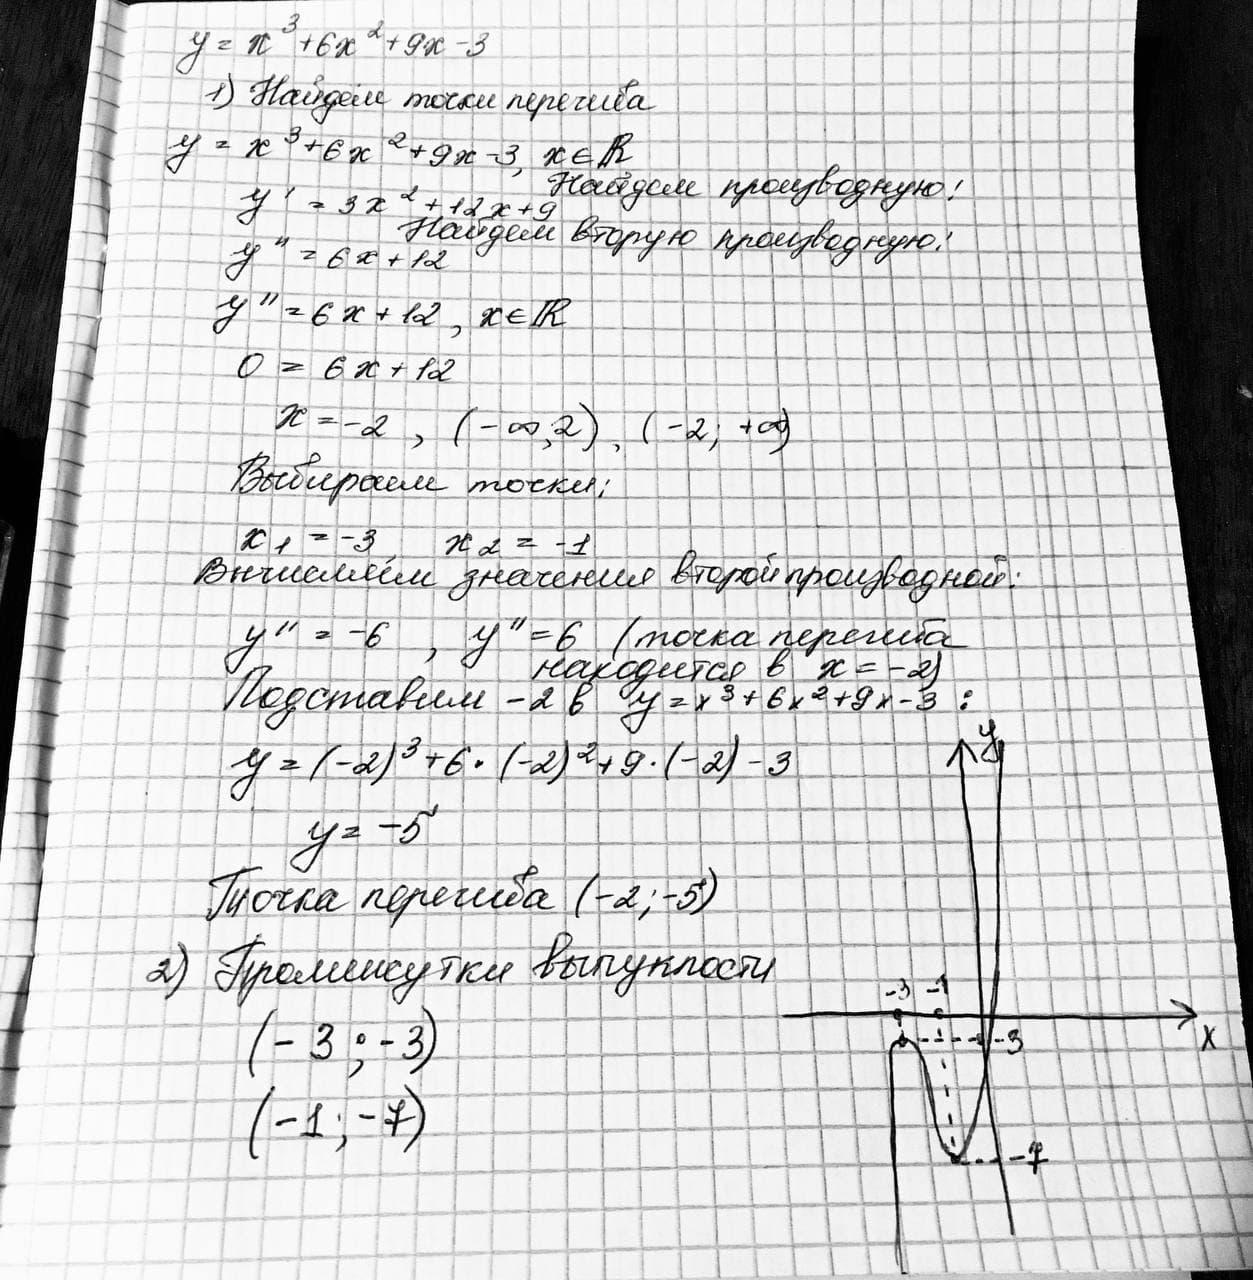 y = x³+6x²+9x-3
1) Найдем точки перегиба
y = x³+6x²+9x-3, x∈ℝ
Найдем производную:
y' = 3x²+12x+9
Найдем вторую производную:
y'' = 6x+12
y'' = 6x+12, x∈ℝ
0 = 6x+12
x = -2, (-∞,2), (-2; +∞)
Выбираем точки:
x₁ = -3, x₂ = -1
Вычисляем значения второй производной:
y'' = -6, y'' = 6 (точка перегиба
находится в x = -2)
Подставим -2 в y = x³+6x²+9x-3:
y = (-2)³+6·(-2)²+9·(-2)-3
y = -5
Точка перегиба (-2;-5)
2) Промежутки выпуклости
(-3;-3)
(-1;-7)
y
-3 -1
x
-3
-7